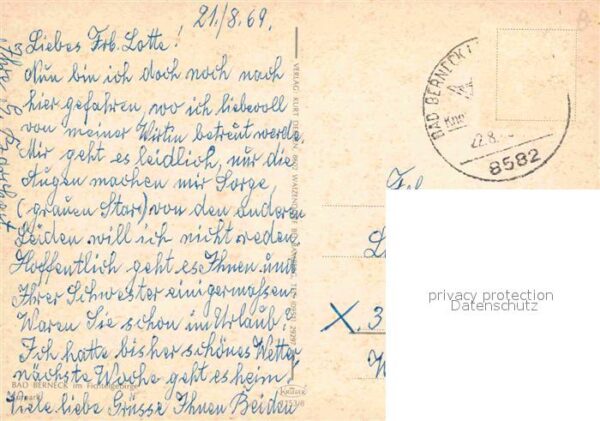 21./8.69.
Liebes Frl. Lotte!
Nun bin ich doch noch nach
hier gefahren, wo ich liebevoll
von meiner Wirtin betreut werde.
Mir geht es leidlich, nur die
Augen machen mir Sorge,
(grauen Star) von den anderen
Leiden will ich nicht reden
Hoffentlich geht es Ihnen und
Ihrer Schwester einigermassen.
Waren Sie schon im Urlaub?
Ich hatte bisher schönes Wetter
nächste Woche geht es heim!
Viele liebe Grüsse Ihnen Beiden
BAD BERNECK im Fichtelgebirge
Kurpark
VERLAG: KURT
KRÜGER
BAD BERNECK i.
22.8.
8582
Frl.
L
X. 3
W
privacy protection
Datenschutz